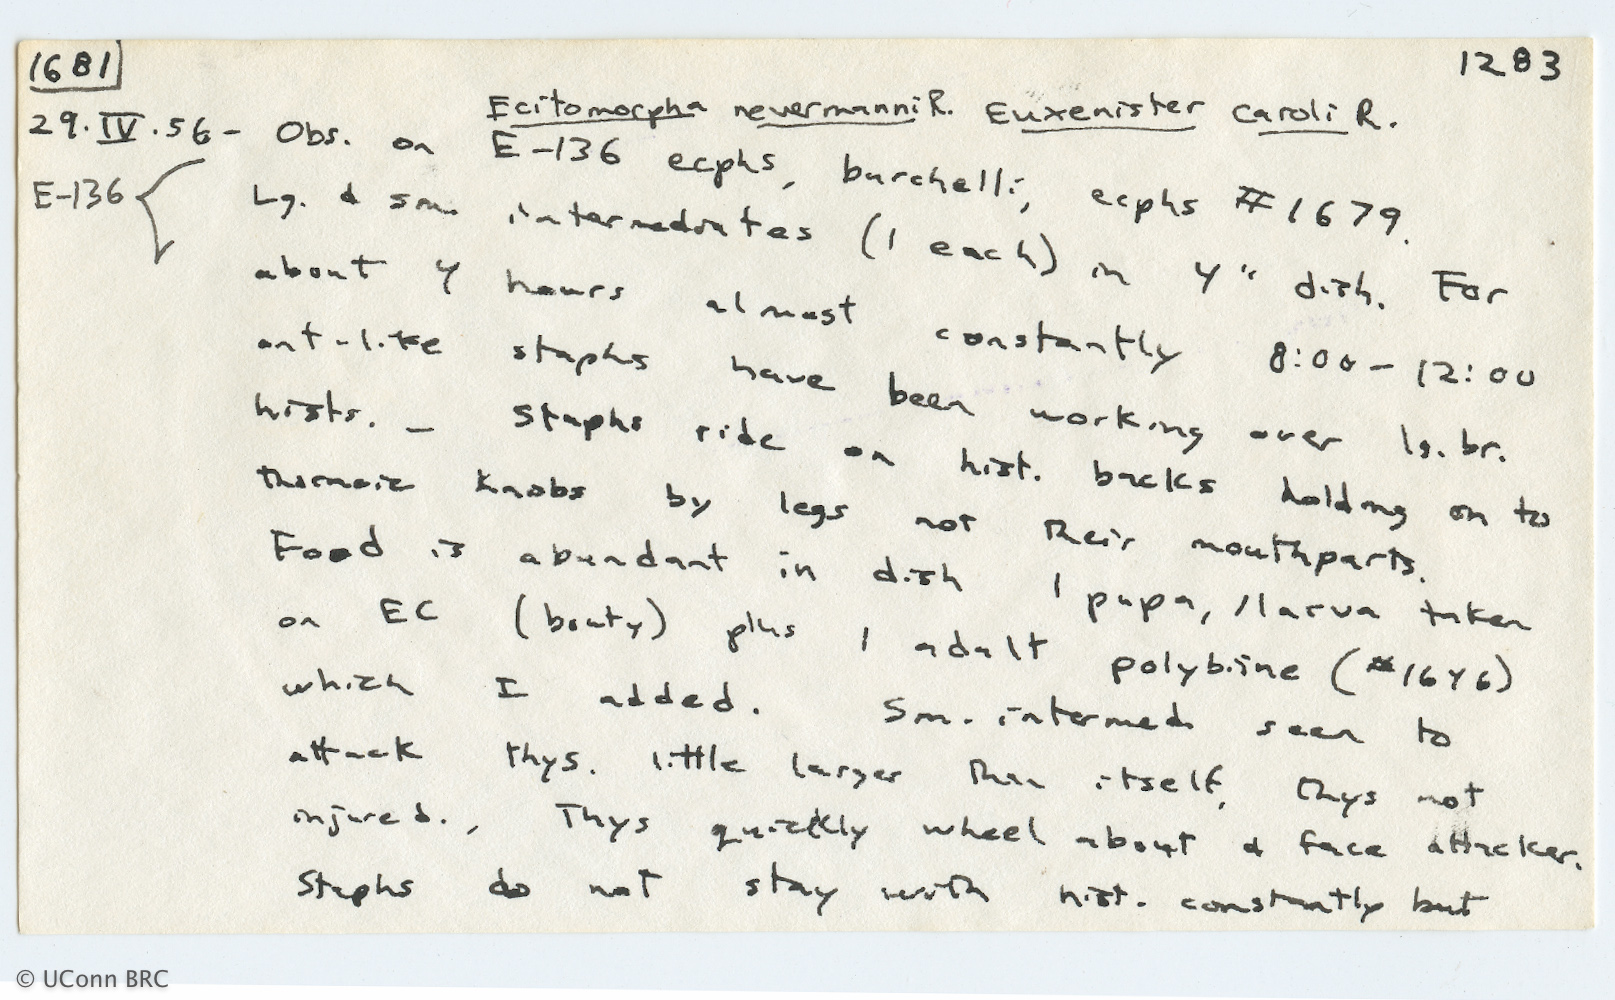 1681 1283
Ecitomorpha nevermanni R. Euxenister caroli R.
29.IV.56 - Obs. on E-136 ecphs, burchelli, ecphs #1679.
E-136 Lg. & sm. intermediates (1 each) in 4" dish. For
about 4 hours almost constantly 8:00 - 12:00
ant-like staphs have been working over lg. br.
hists. - Staphs ride on hist. backs holding on to
thoracic knobs by legs not their mouthparts.
Food is abundant in dish 1 pupa, 1 larva taken
on EC (bouty) plus 1 adult polybiine (#1646)
which I added. Sm. intermed. seen to
attack thys. little larger than itself, thys not
injured., Thys quickly wheel about & face attacker.
Staphs do not stay with hist. constantly but
© UConn BRC